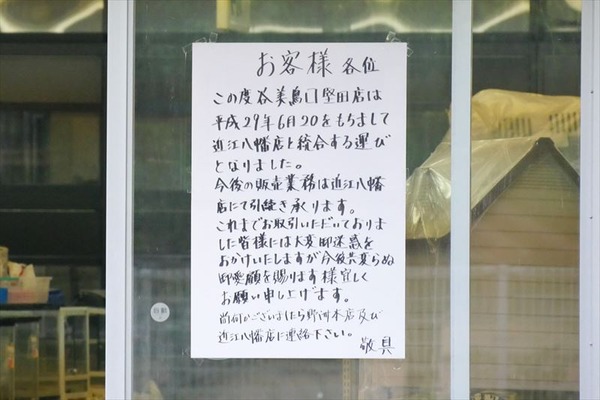 お客様 各位
この度谷美鳥口堅田店は
平成29年6月20をもちまして
近江八幡店と統合する運び
となりました。
今後の販売業務は近江八幡
店にて引続き承ります。
これまでお取引いただいておりま
した皆様には大変御迷惑を
おかけいたしますが今後共変らぬ
御愛顧を賜ります様宜しく
お願い申し上げます。
尚何かございましたら野洲本店及び
近江八幡店に連絡下さい。
敬具
自動